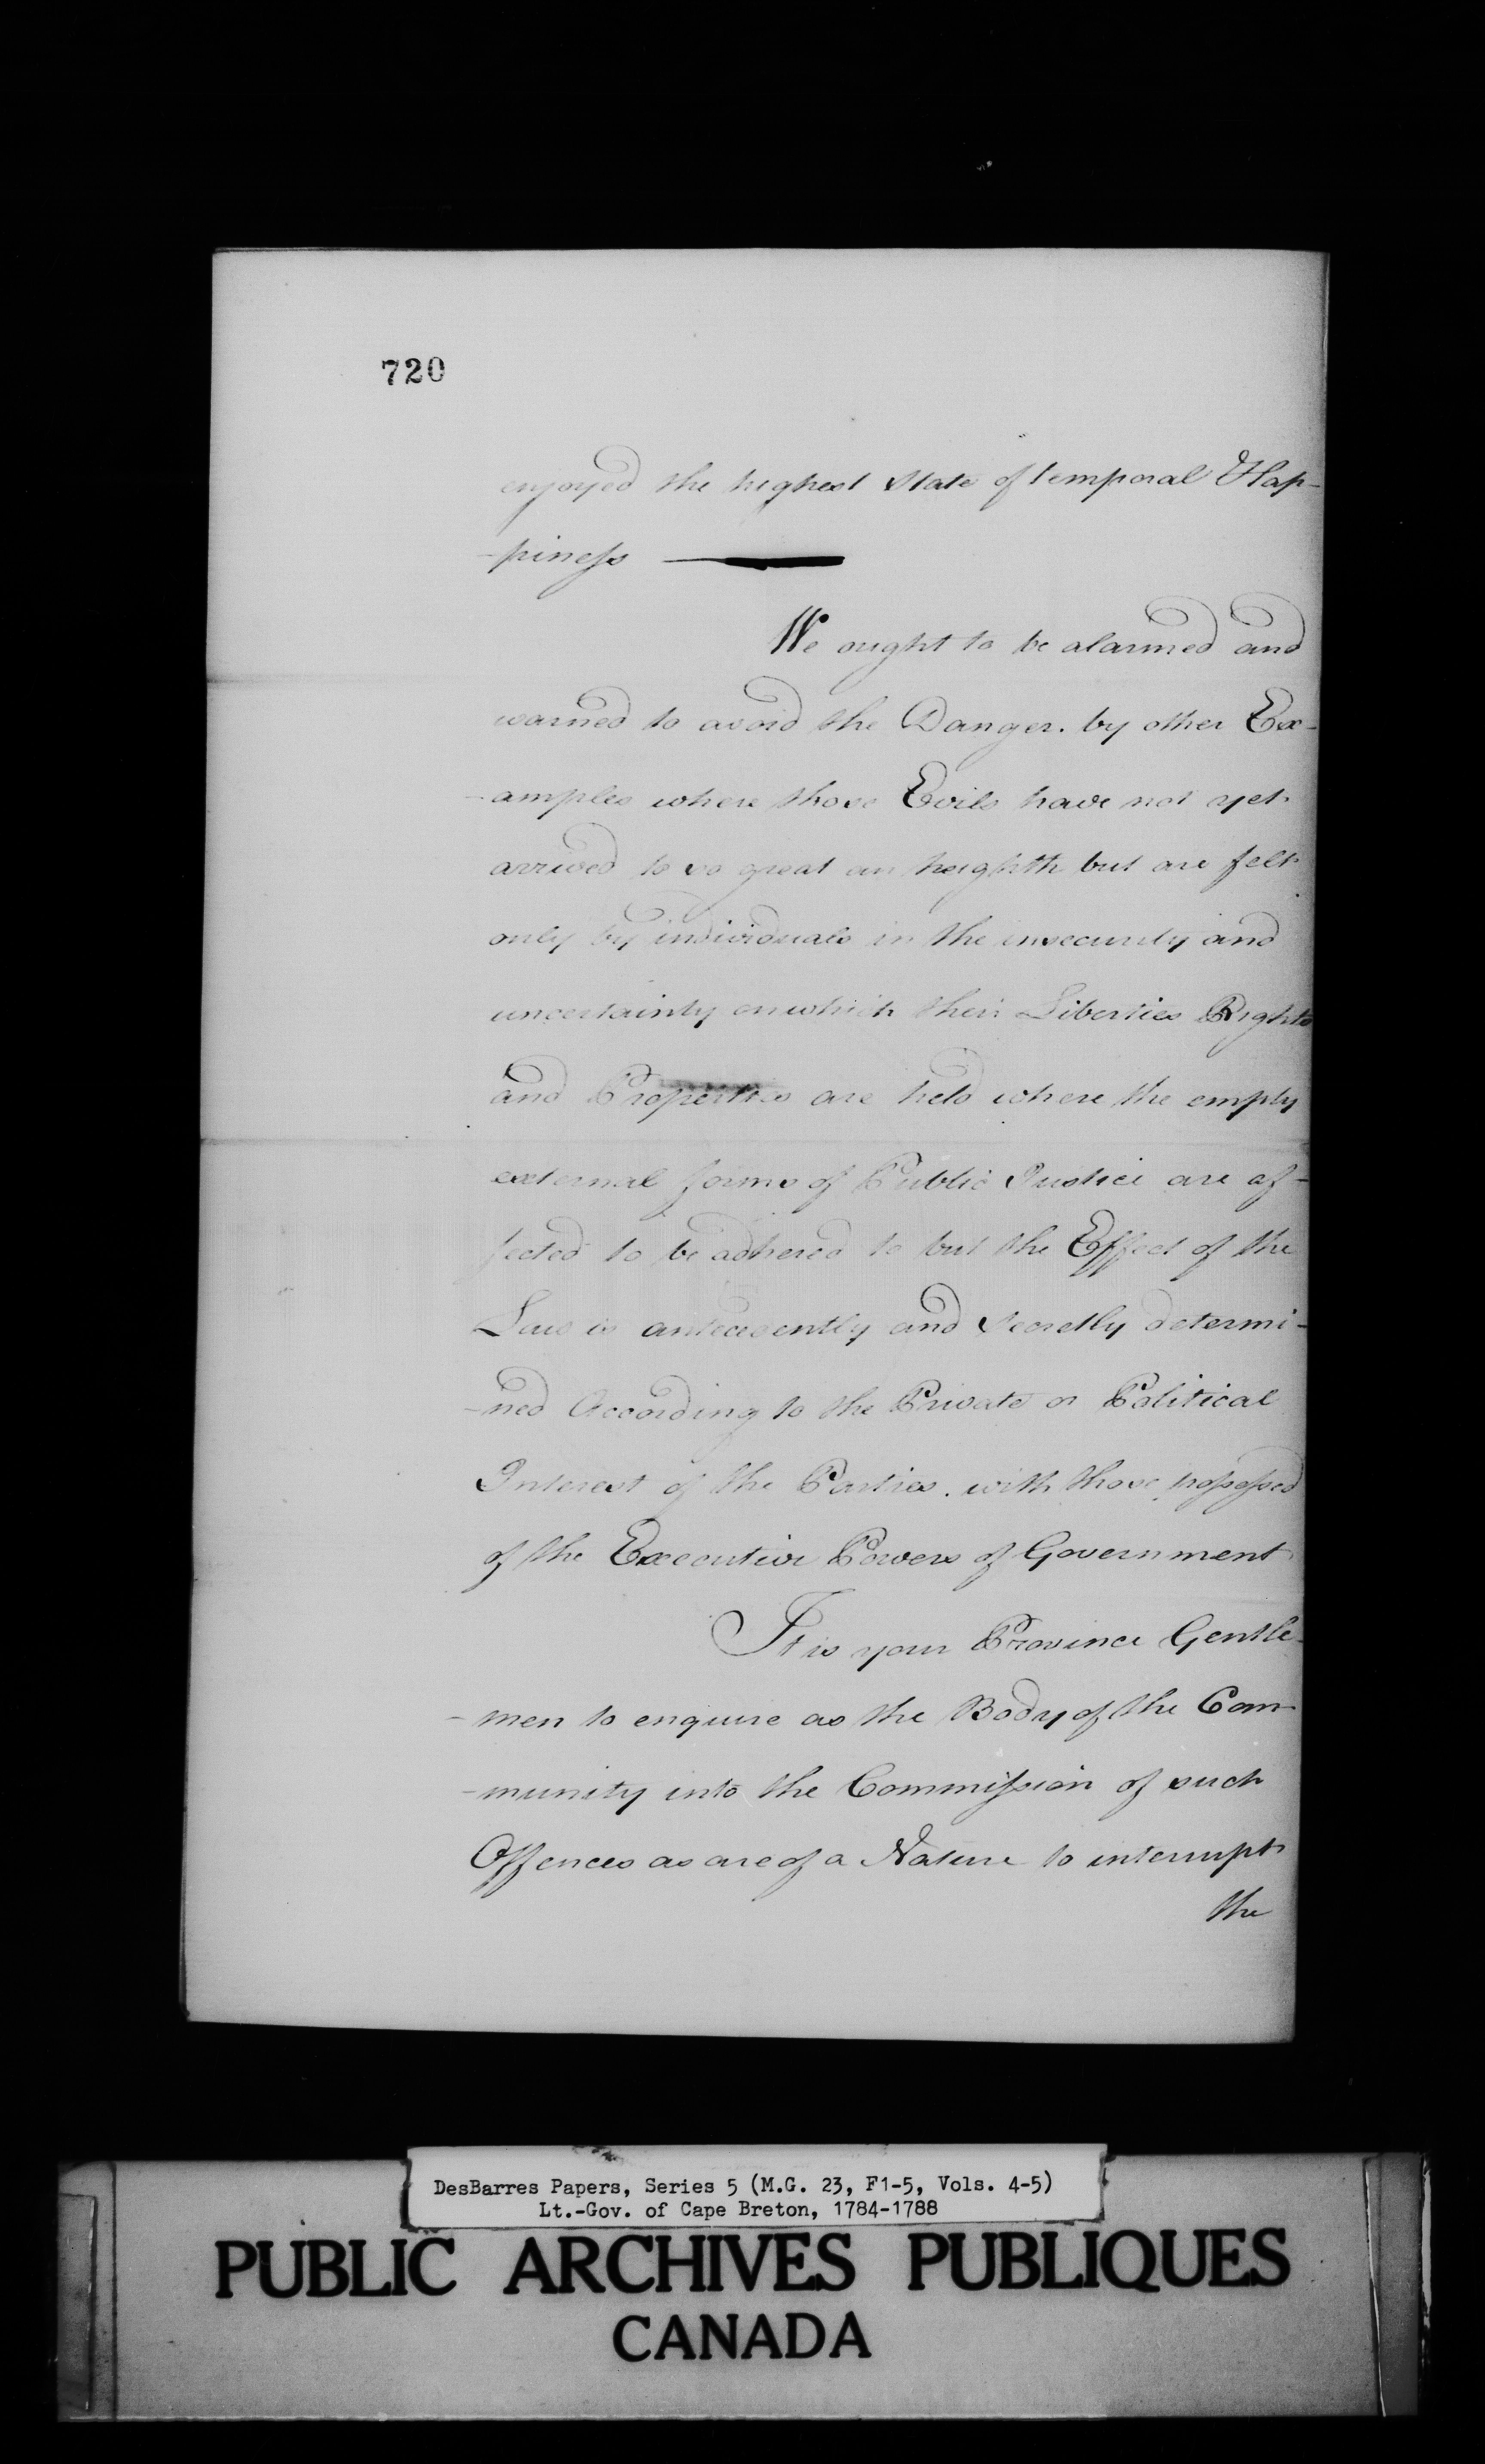 720
enjoyed the highest State of temporal Hap-
-piness
We ought to be alarmed and
warned to avoid the Danger. by other Ex-
-amples where those Evils have not yet
arrived to so great an heighth but are felt
only by individuals in the insecurity and
uncertainty on which their Liberties Rights
and Properties are held where the empty
external forms of Public Justice are af-
fected to be adhered to but the Effect of the
Law is antecedently and Secretly determi-
-ned According to the Private or Political
Interest of the Parties. with those possessed
of the Executive Powers of Government
It is your Province Gentle-
-men to enquire as the Body of the Com-
-munity into the Commission of such
Offences as are of a Nature to interrupt
the
DesBarres Papers, Series 5 (M.G. 23, F1-5, Vols. 4-5)
Lt.-Gov. of Cape Breton, 1784-1788
PUBLIC ARCHIVES PUBLIQUES
CANADA